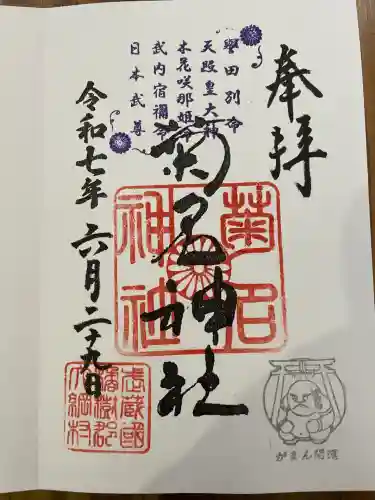 奉拝
譽田別命
天照皇大神
木花咲那姫命
武内宿禰命
日本武尊
菊名神社
菊名神社
令和七年 六月二十九日
武蔵國
橘樹郡
大綱村
がまん開運